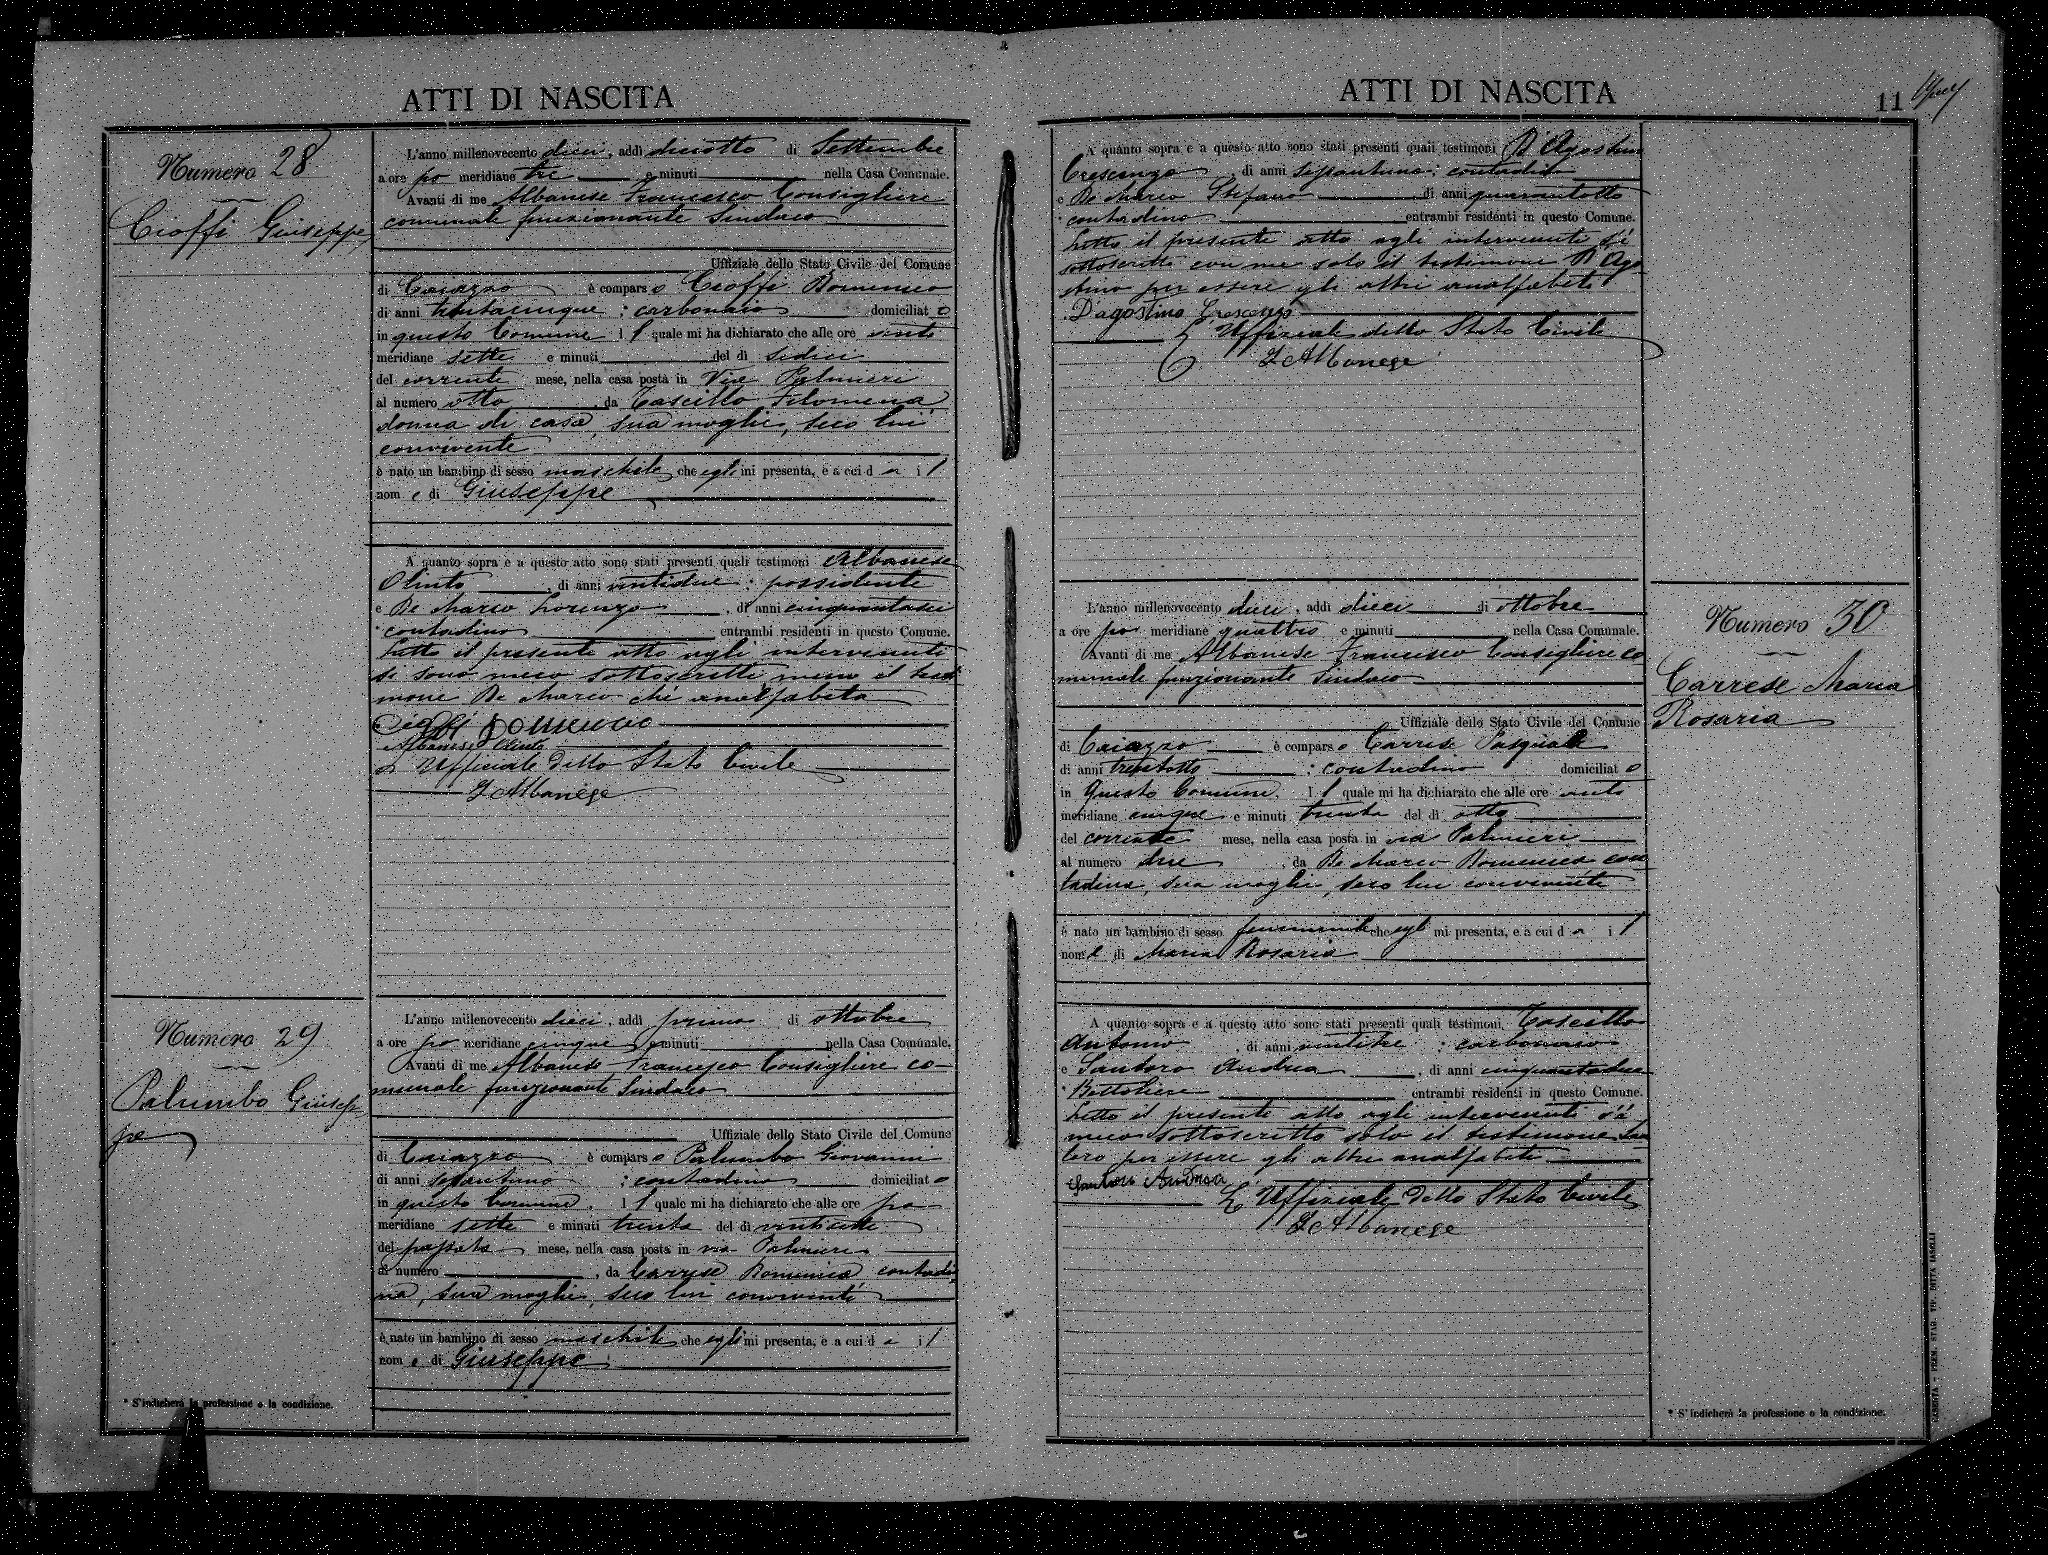 ATTI DI NASCITA
Numero 28
Cioffi Giuseppe
L'anno millenovecento dieci, addì diciotto di Settembre
a ore po meridiane tre e minuti nella Casa Comunale.
Avanti di me Albanese Francesco Consigliere
comunale funzionante Sindaco
Uffiziale dello Stato Civile del Comune
di Caiazzo è comparso Cioffi Domenico
di anni trentacinque : carbonaio domiciliato
in questo Comune il quale mi ha dichiarato che alle ore anti
meridiane sette e minuti del dì sedici
del corrente mese, nella casa posta in Via Palmieri
al numero otto da Tascillo Filomena
donna di casa, sua moglie, seco lui
convivente
è nato un bambino di sesso maschile che egli mi presenta, e a cui dà il
nome di Giuseppe
A quanto sopra e a questo atto sono stati presenti quali testimoni Albanese
Olinto di anni ventidue : possidente
e De Marco Lorenzo, di anni cinquantasei
contadino entrambi residenti in questo Comune.
Letto il presente atto agli intervenuti
si sono meco sottoscritti meno il testi
mone De Marco chè analfabeta
Cioffi Domenico
Albanese Olinto
L'Ufficiale dello Stato Civile
F Albanese
Numero 29
Palumbo Giusep
pe
L'anno millenovecento dieci, addì primo di ottobre
a ore po meridiane cinque e minuti nella Casa Comunale.
Avanti di me Albanese Francesco Consigliere co-
munale funzionante Sindaco
Uffiziale dello Stato Civile del Comune
di Caiazzo è comparso Palumbo Giovanni
di anni : contadino domiciliato
in questo Comune. il quale mi ha dichiarato che alle ore po
meridiane sette e minuti trenta del dì
del passato mese, nella casa posta in via Palmieri
al numero, da Carrese Domenica contadi
na, sua moglie, seco lui convivente
è nato un bambino di sesso maschile che egli mi presenta, e a cui dà il
nome di Giuseppe
* S'indicherà la professione o la condizione.
ATTI DI NASCITA
11
A quanto sopra e a questo atto sono stati presenti quali testimoni D'Agostino
Crescenzo di anni : contadino
e De Marco Stefano di anni quarantotto
contadino entrambi residenti in questo Comune.
Letto il presente atto agli intervenuti si è
sottoscritto con me solo il testimone D'Ago
stino per essere gli altri analfabeti
D'agostino Crescenzo
L'Uffiziale dello Stato Civile
F Albanese
L'anno millenovecento dieci, addì dieci di ottobre
a ore po meridiane quattro e minuti nella Casa Comunale.
Avanti di me Albanese Francesco Consigliere co
munale funzionante Sindaco
Numero 30
Carrese Maria
Rosaria
Uffiziale dello Stato Civile del Comune
di Caiazzo è comparso Carrese Pasquale
di anni trentotto : contadino domiciliato
in Questo Comune. il quale mi ha dichiarato che alle ore anti
meridiane cinque e minuti trenta del dì otto
del corrente mese, nella casa posta in via Palmieri
al numero due, da De Marco Domenica con
tadina, sua moglie, seco lui convivente
è nato un bambino di sesso femminile che egli mi presenta, e a cui dà il
nome di Maria Rosaria
A quanto sopra e a questo atto sono stati presenti quali testimoni Tascillo
Antonio, di anni ventitre : carbonaio
e Santoro Andrea, di anni cinquantadue
Bottoliere entrambi residenti in questo Comune.
Letto il presente atto agli intervenuti s'è
meco sottoscritto solo il testimone San
toro per essere gli altri analfabeti
Santoro Andrea
L'Uffiziale dello Stato Civile
F Albanese
* S'indicherà la professione o la condizione.